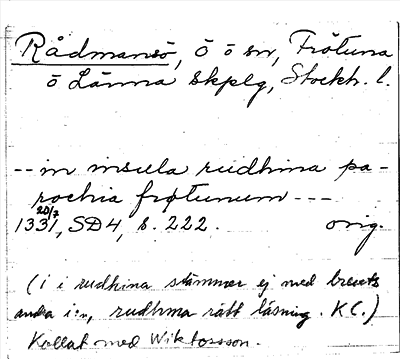 Rådmansö, Ö ö sn, Frötuna
ö Länna skplg, Stockh. l.
-- in insula rudhina pa-
rochia frøtunum ---
1331, 20/7 SD4, s. 222. orig.
(i i rudhina stämmer ej med brevets
andra i:n, rudhma rätt läsning. KC.)
Kollat med Wiktorsson.